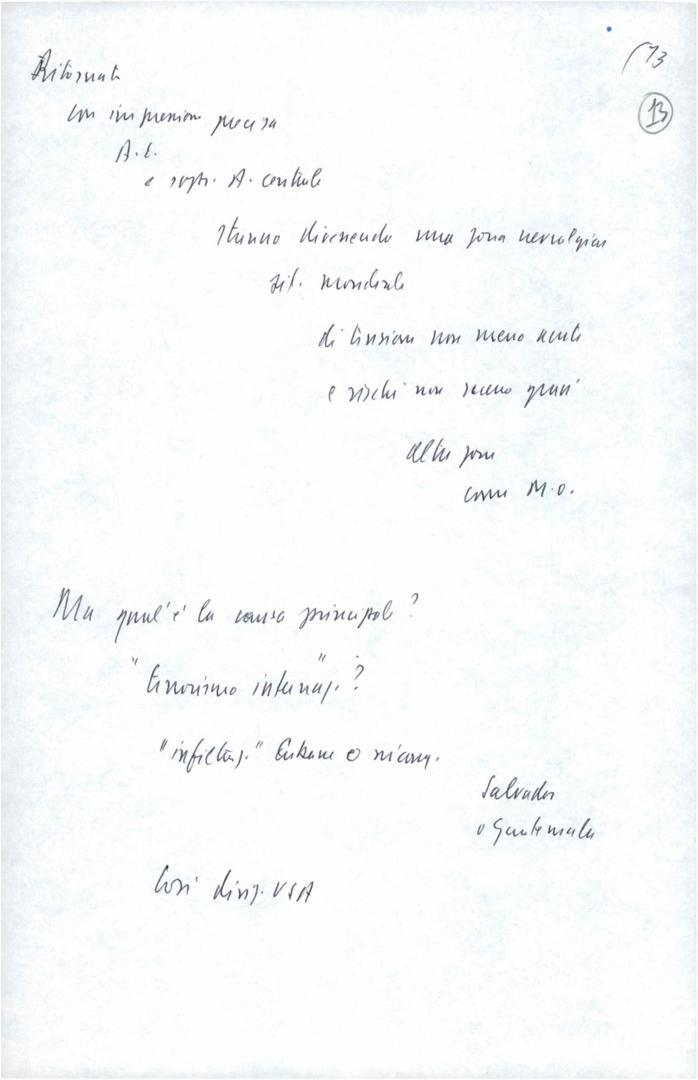 (13
13
Ritornati
con impression precisa
A.L.
e soptt. A. centrale
stanno divenendo una zona nevralgica
sit. mondiale
di tensioni non meno acute
e rischi non meno gravi
altre zone
come M.O.
Ma qual'è la causa principale?
"terrorismo internaz."?
"infiltraz." cubane o nicarag.
Salvador
o Guatemala
Così dirig. USA